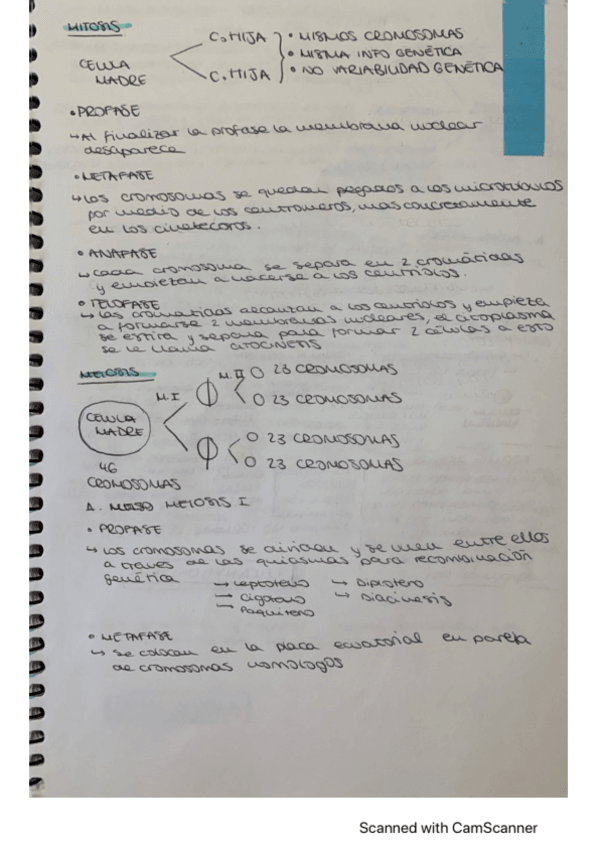 MITOSIS
CELULA MADRE
C. HIJA
C. HIJA
• MISMOS CROMOSOMAS
• MISMA INFO GENÉTICA
• NO VARIABILIDAD GENÉTICA
• PROFASE
↳ Al finalizar la profase la membrana nuclear
desaparece
• METAFASE
↳ Los cromosomas se quedan pegados a los microtubulos
por medio de los centromeros, mas concretamente
en los cinetecoros.
• ANAFASE
↳ cada cromosoma se separa en 2 cromátidas
y empiezan a hacerse a los centriolos.
• TELOFASE
↳ Las cromatidas alcanzan a los centriolos y empieza
a formarse 2 membranas nucleares, el citoplasma
se estira y separa para formar 2 células a esto
se le llama CITOCINESIS
MEIOSIS
CELULA
MADRE
46
CROMOSOMAS
M.I
M.II
23 CROMOSOMAS
23 CROMOSOMAS
23 CROMOSOMAS
23 CROMOSOMAS
1. MEIOSIS I
• PROFASE
↳ Los cromosomas se y se unen entre ellos
a traves de las quiasmas para recombinación
genética
→ Leptoteno
→ Cigoteno
→ Paquiteno
↳ Diploteno
↳ Diacinesis
• METAFASE
↳ se colocan en la placa ecuatorial en pareja
de cromosomas homologos
Scanned with CamScanner